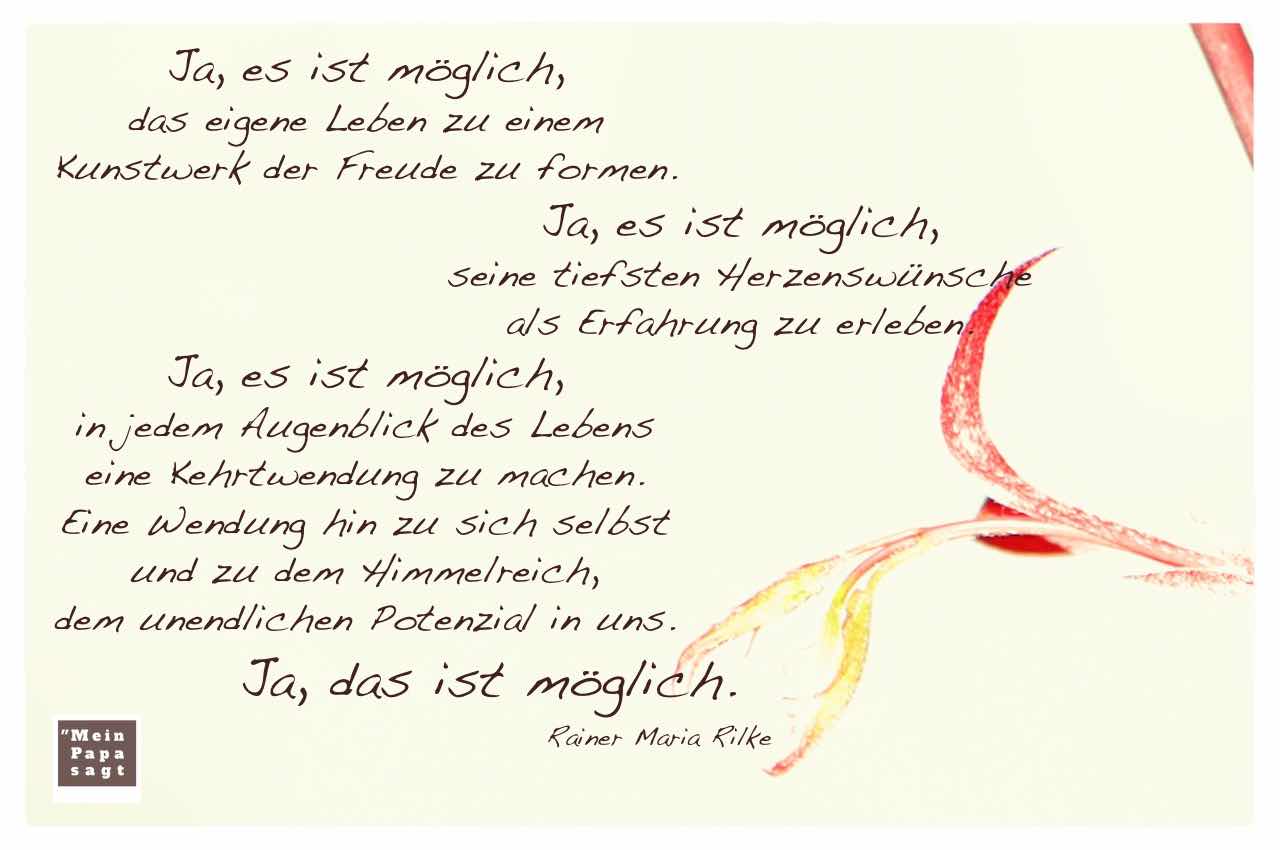 Ja, es ist möglich,
das eigene Leben zu einem
Kunstwerk der Freude zu formen.
Ja, es ist möglich,
seine tiefsten Herzenswünsche
als Erfahrung zu erleben.
Ja, es ist möglich,
in jedem Augenblick des Lebens
eine Kehrtwendung zu machen.
Eine Wendung hin zu sich selbst
und zu dem Himmelreich,
dem unendlichen Potenzial in uns.
Ja, das ist möglich.
Rainer Maria Rilke
"Mein
Papa
sagt